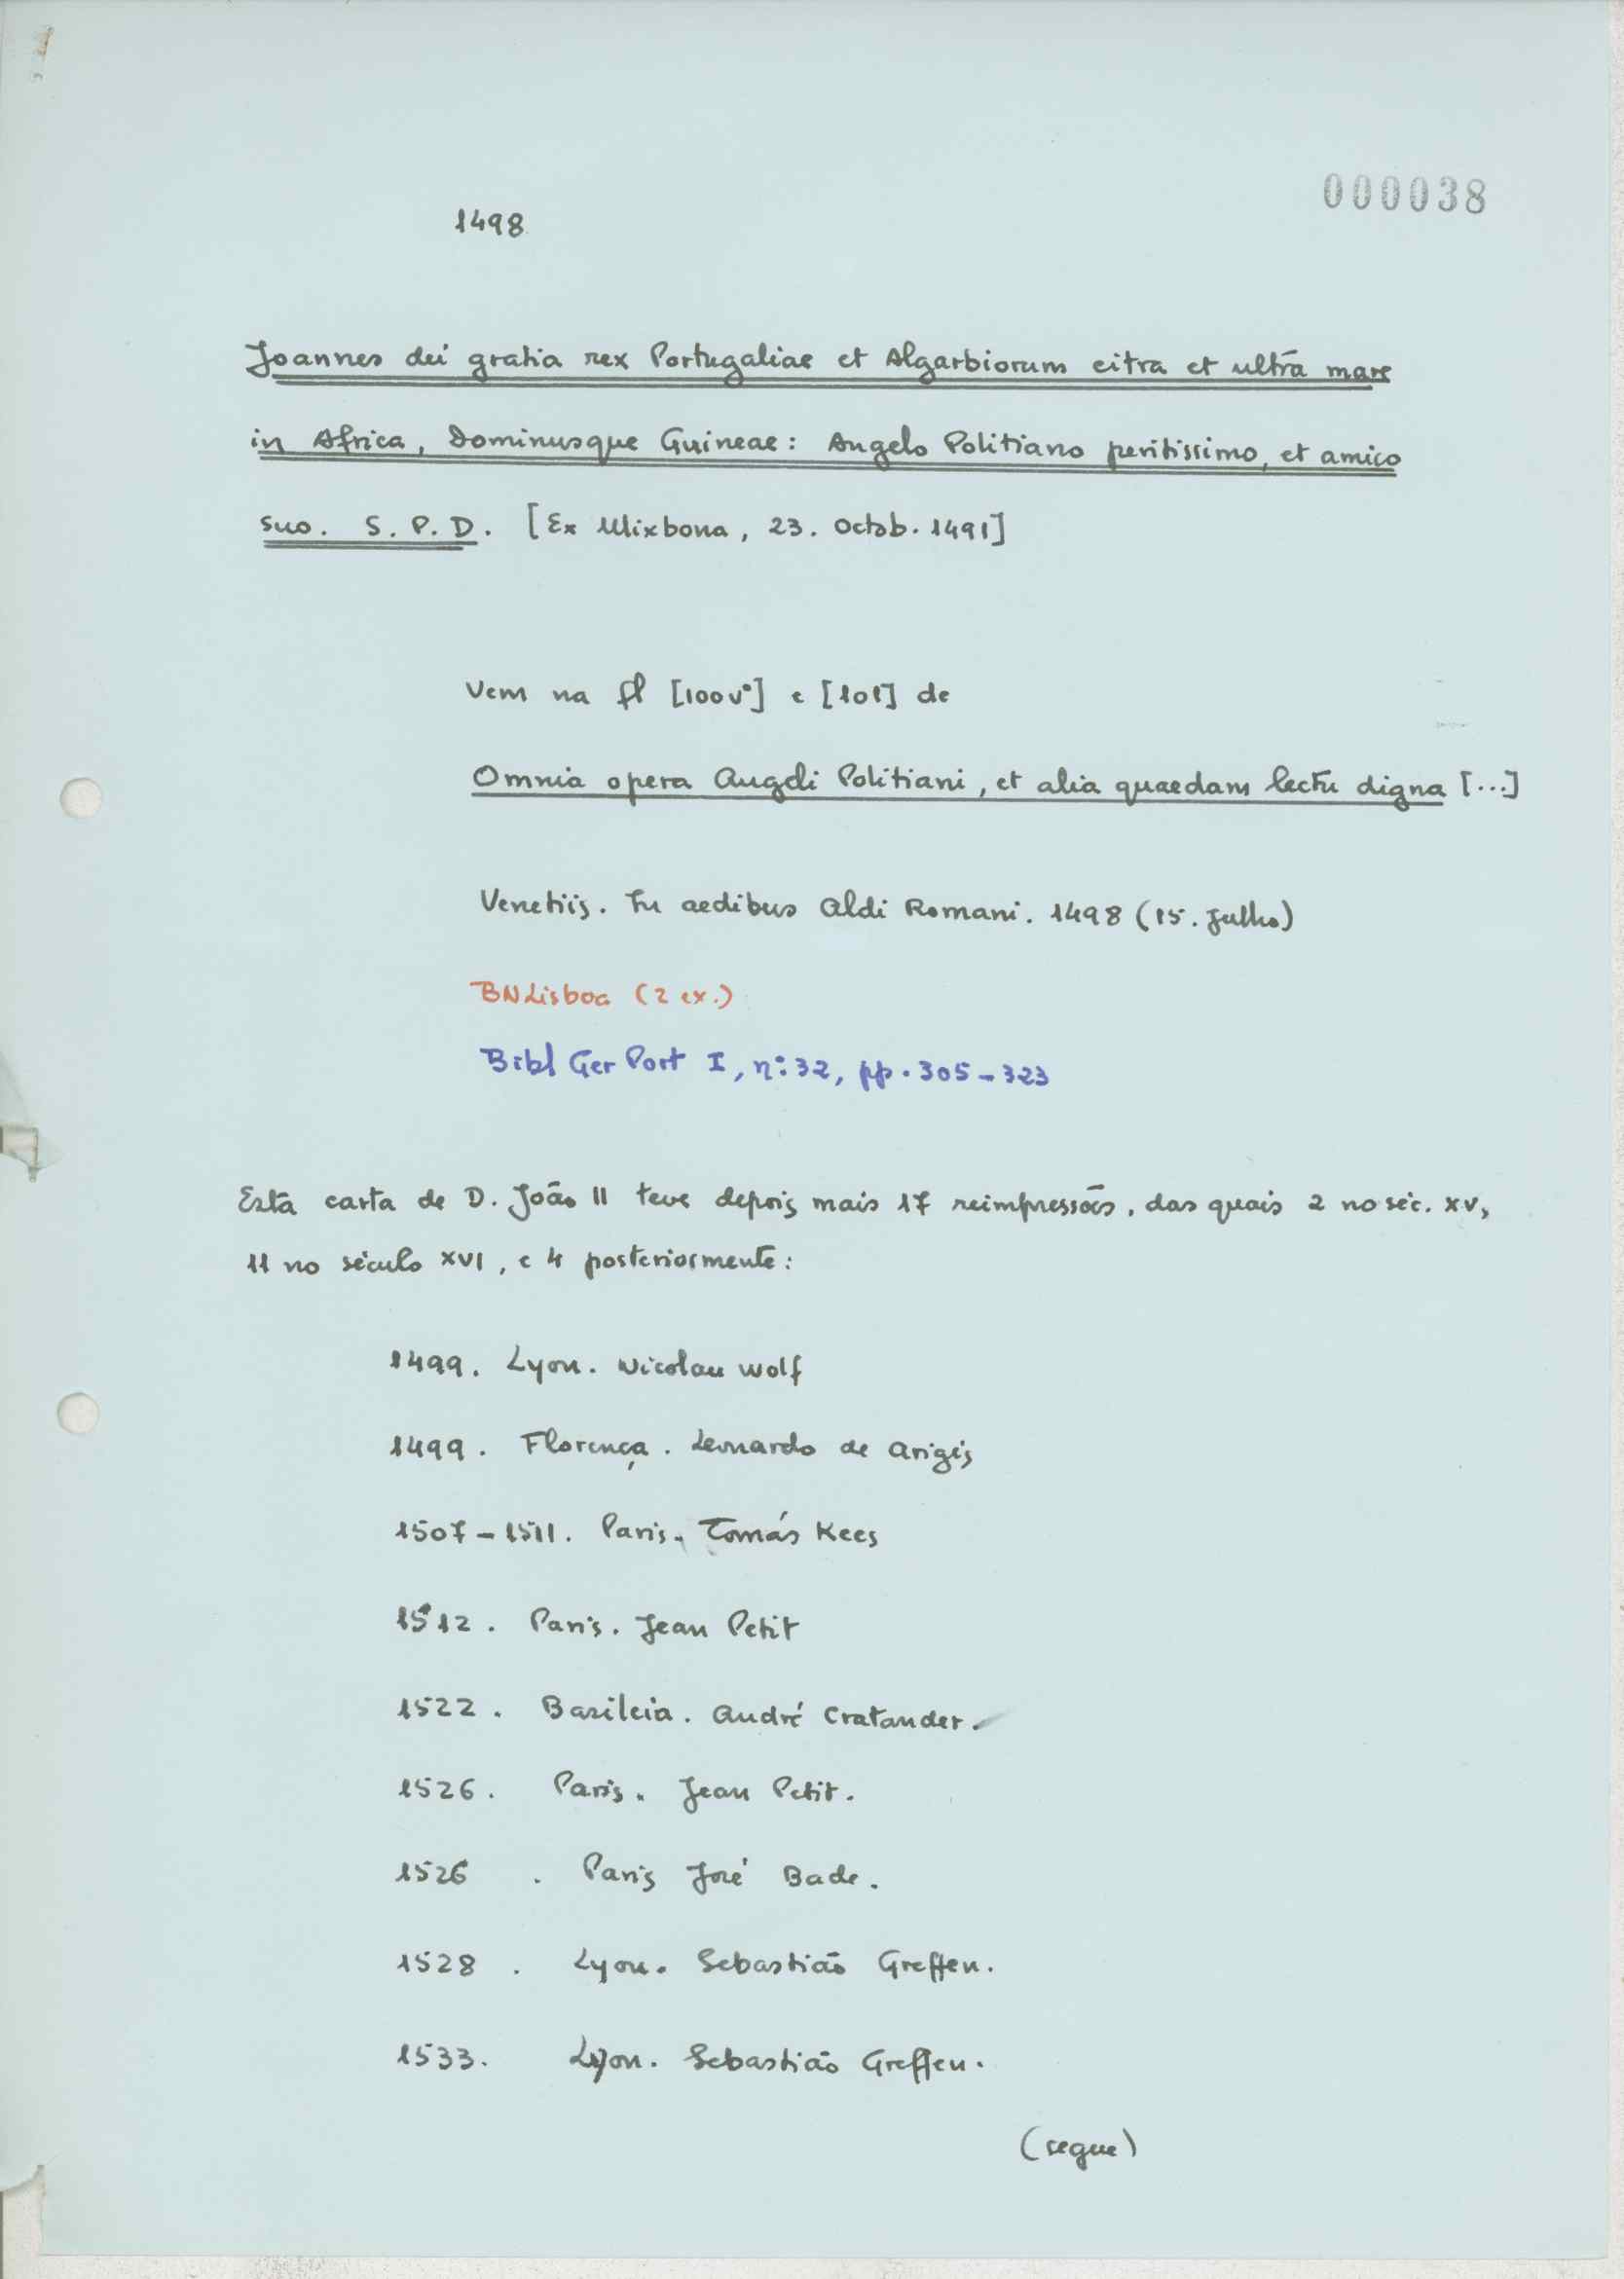 000038
1498
Joannes dei gratia rex Portugaliae et Algarbiorum citra et ultra mare
in Africa, Dominusque Guineae: Angelo Politiano peritissimo, et amico
suo. S. P. D. [Ex Ulixbona, 23. Octob. 1491]
Vem na fl [100vº] e [101] de
Omnia opera Angeli Politiani, et alia quaedam lectu digna [...]
Venetiis. In aedibus Aldi Romani. 1498 (15. Julho)
BNLisboa (2 ex.)
Bibl Ger Port I, nº 32, pp. 305-323
Esta carta de D. João II teve depois mais 17 reimpressões, das quais 2 no séc. XV,
11 no século XVI, e 4 posteriormente:
1499. Lyon. Nicolau Wolf
1499. Florença. Leonardo de Arigis
1507-1511. Paris. Tomás Kees
1512. Paris. Jean Petit
1522. Basileia. André Cratander.
1526. Paris. Jean Petit.
1526 . Paris José Bade.
1528 . Lyon. Sebastião Greffen.
1533. Lyon. Sebastião Greffen.
(segue)